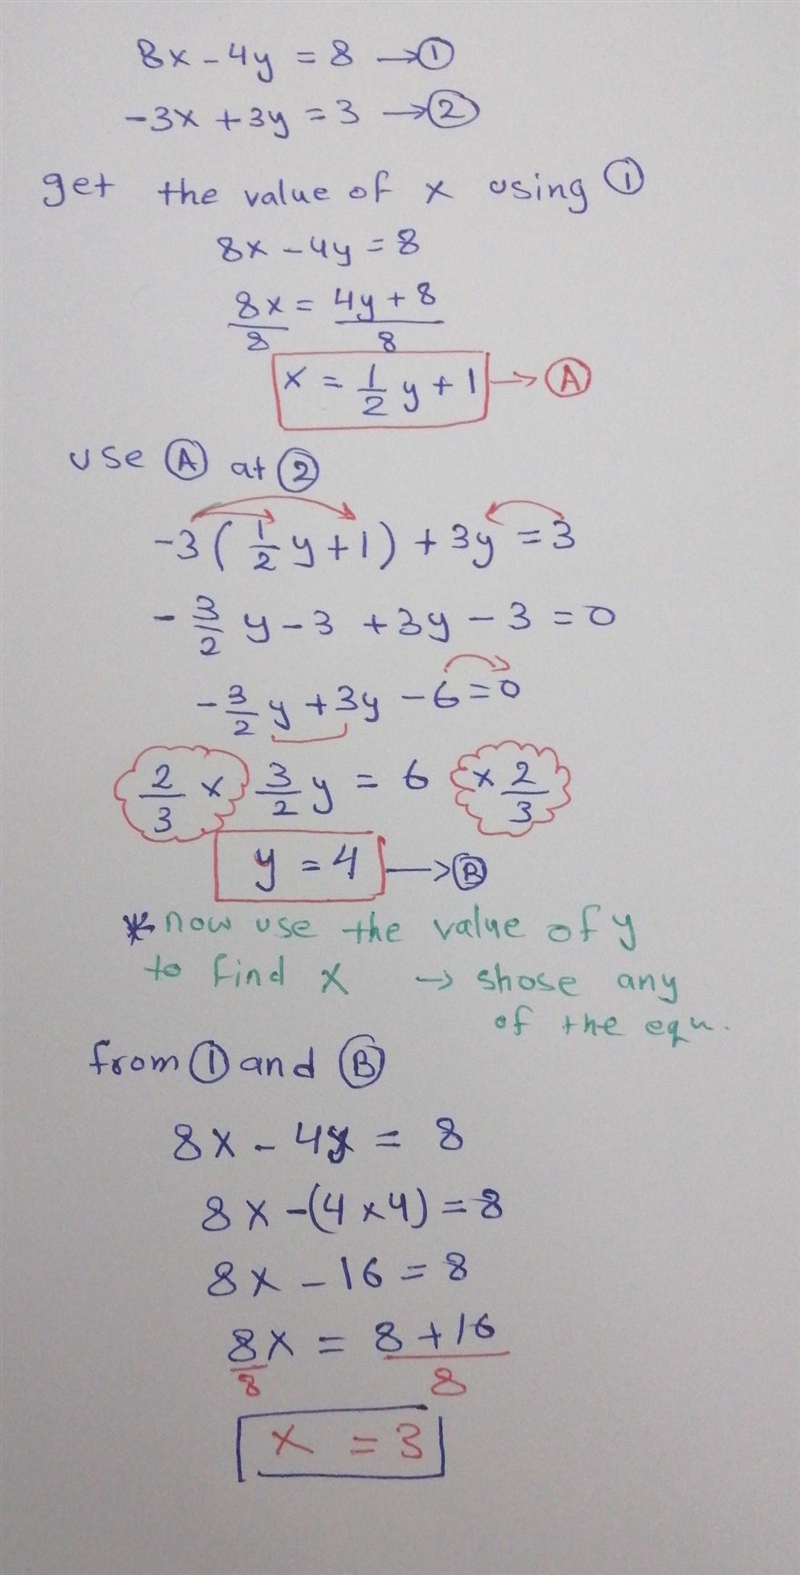 8x - 4y = 8 → ①
-3x + 3y = 3 → ②
get the value of x using ①
8x - 4y = 8
8x/8 = (4y + 8)/8
x = 1/2 y + 1 → Ⓐ
use Ⓐ at ②
-3 ( 1/2 y + 1 ) + 3y = 3
- 3/2 y - 3 + 3y - 3 = 0
- 3/2 y + 3y - 6 = 0
2/3 × 3/2 y = 6 × 2/3
y = 4 → Ⓑ
* now use the value of y
to find x → shose any
of the equ.
from ① and Ⓑ
8x - 4y = 8
8x - (4 × 4) = 8
8x - 16 = 8
8x/8 = (8 + 16)/8
x = 3